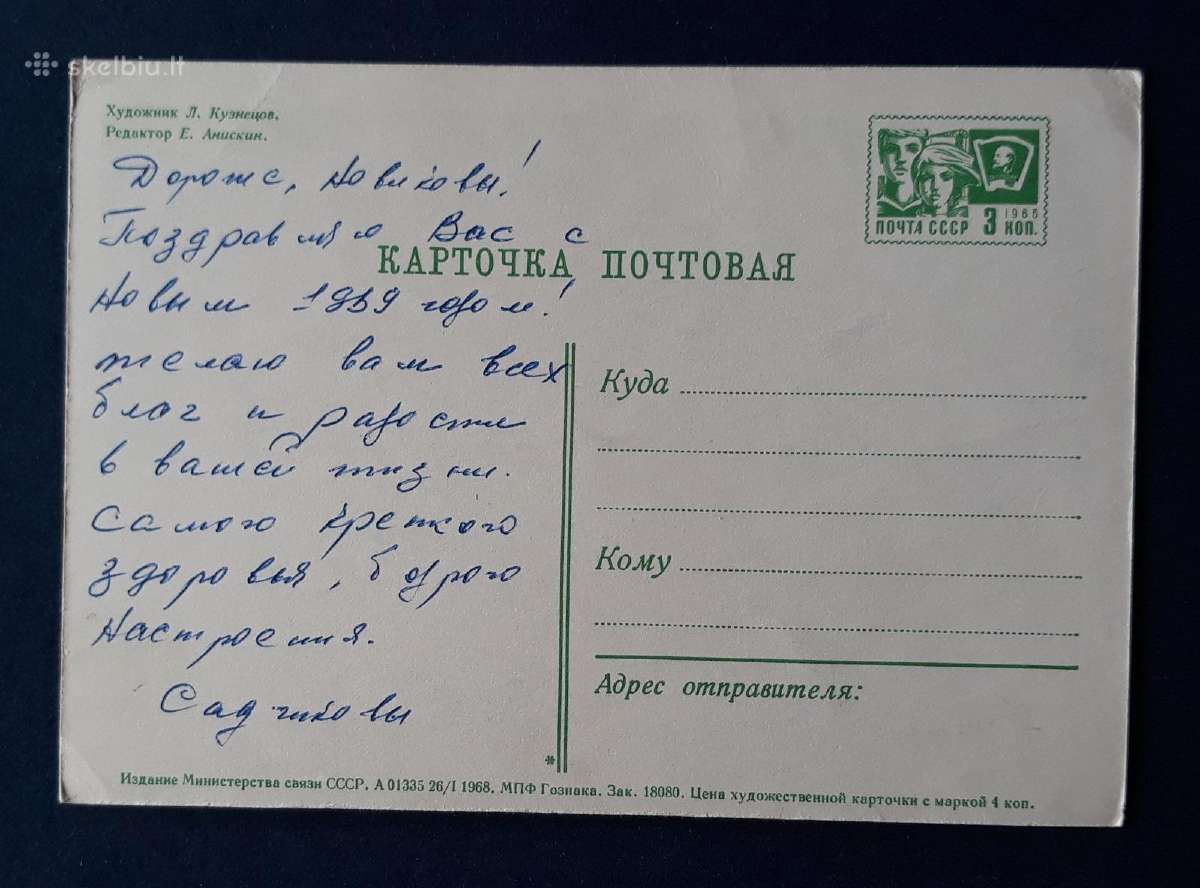 skelbiu.lt
Художник Л. Кузнецов.
Редактор Е. Анискин.
Дорогие, Новиковы!
Поздравляю Вас с
Новым 1969 годом!
желаю вам всех
благ и радости
в вашей жизни.
Самого крепкого
здоровья, бодрого
Настроения.
Садчиковы
ПОЧТА СССР 3 КОП.
1966
КАРТОЧКА ПОЧТОВАЯ
Куда
Кому
Адрес отправителя:
Издание Министерства связи СССР. А 01335 26/I 1968. МПФ Гознака. Зак. 18080. Цена художественной карточки с маркой 4 коп.